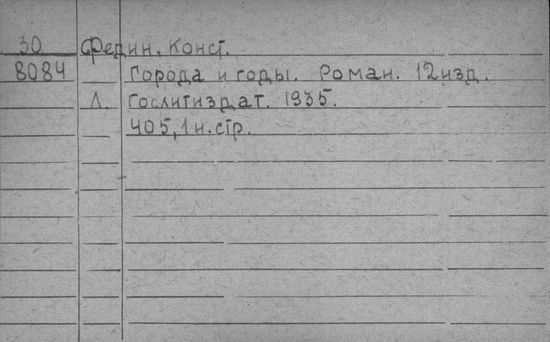 30 Федин, Конст.
8084 Города и годы. Роман. 12 изд.
Л. Гослитиздат. 1935.
405, 1 н. стр.